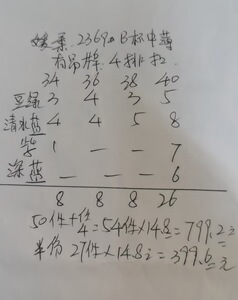 2369# B杯中薄
有吊牌.4排扣
34 36 38 40
豆绿 3 4 3 5
清水蓝 4 4 5 8
紫 1 — — 7
深蓝 — — — 6
8 8 8 26
50件+4件=54件×14.8=799.2元
半价 27件×14.8元=399.6元